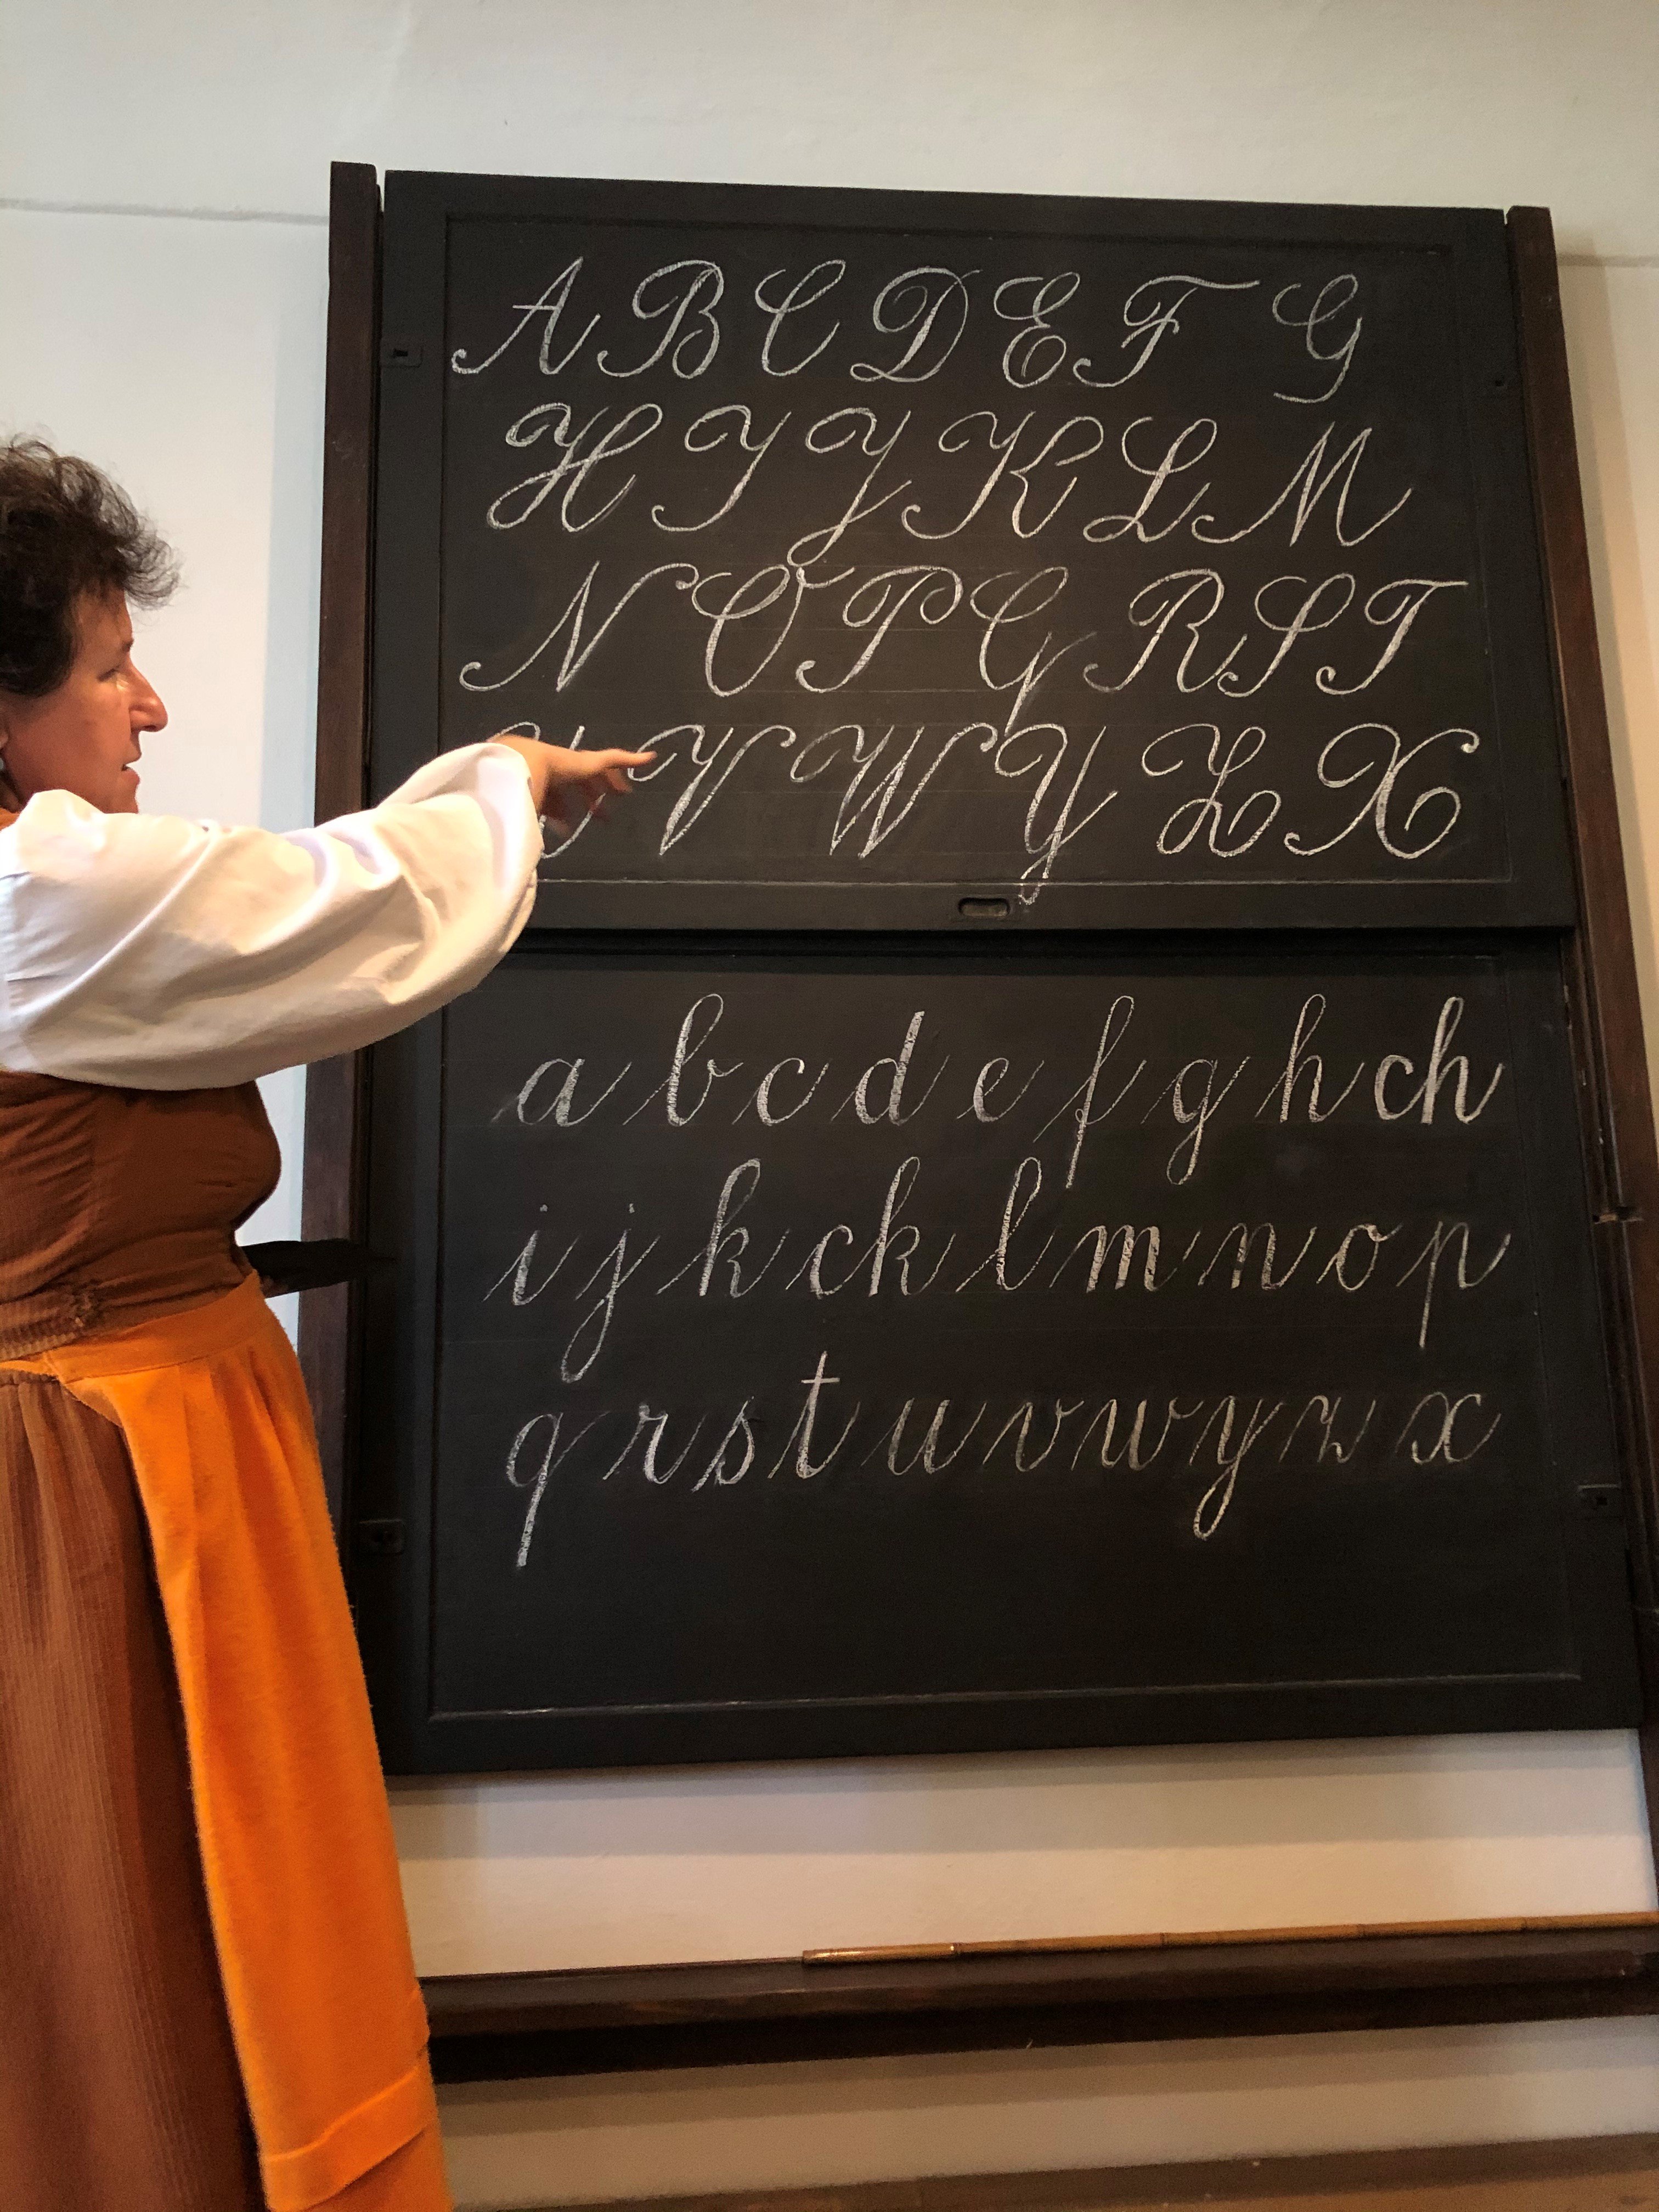 A B C D E F G
H I J K L M
N O P Q R S T
U V W Y Z X
a b c d e f g h ch
i j k ck l m n o p
q r s t u v w y z x